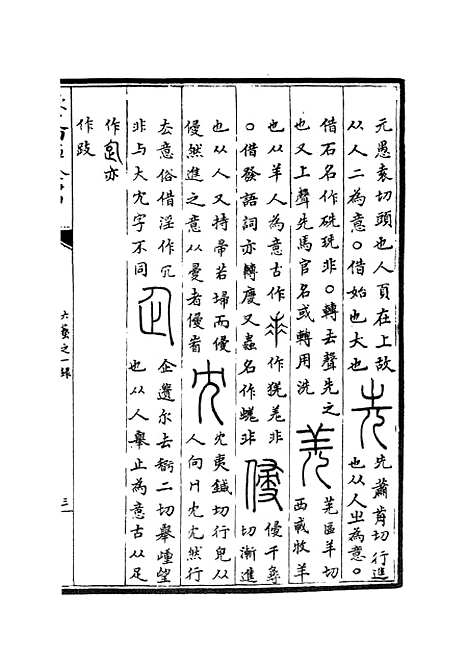 元愚袁切頭也人頁在上故
从人二為意。借始也大也
先
先蕭前切行進
也从人㞢為意。
借石名作非。轉去聲先之
也又上聲先馬官名或轉用洗
羌
羌區羊切
西戎牧羊
也从羊人為意古作作羗非
。借發語詞亦轉慶又蟲名作蜣非
侵
侵千尋
切漸進
也从人又持帚若埽而侵
侵然進之意从𠬶者侵省
冘
冘夷鍼切行皃从
人向冂冘冘然行
去意俗借淫作冗
非与大冘字不同
企
企遺尒去智二切舉踵望
也从人舉止為意古从足
作亦
作跂
六藝之一錄
三